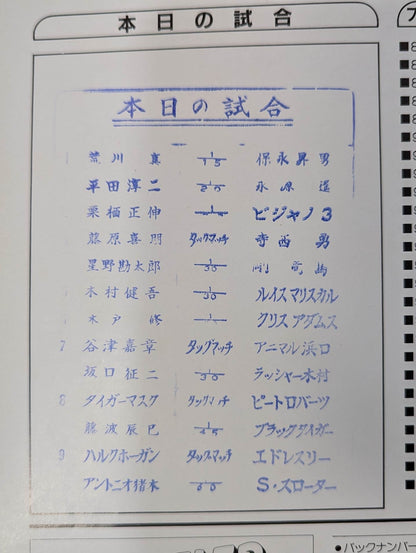 本日の試合
本日の試合
荒川 真 1/15 保永昇男
平田淳二 20 永源遥
栗栖正伸 ビジャノ3
藤原喜明 タッグマッチ 寺西 勇
星野勘太郎 30 剛竜馬
木村健吾 30 ルイスマリスカル
木戸 修 クリスアダムス
7 谷津嘉章 タッグマッチ アニマル浜口
坂口征二 30 ラッシャー木村
8 タイガーマスク タッグマッチ ピートロバーツ
藤波辰巳 45 ブラックタイガー
9 ハルクホーガン タッグマッチ エドレスリー
アントニオ猪木 60 S・スローター
●バックナンバー